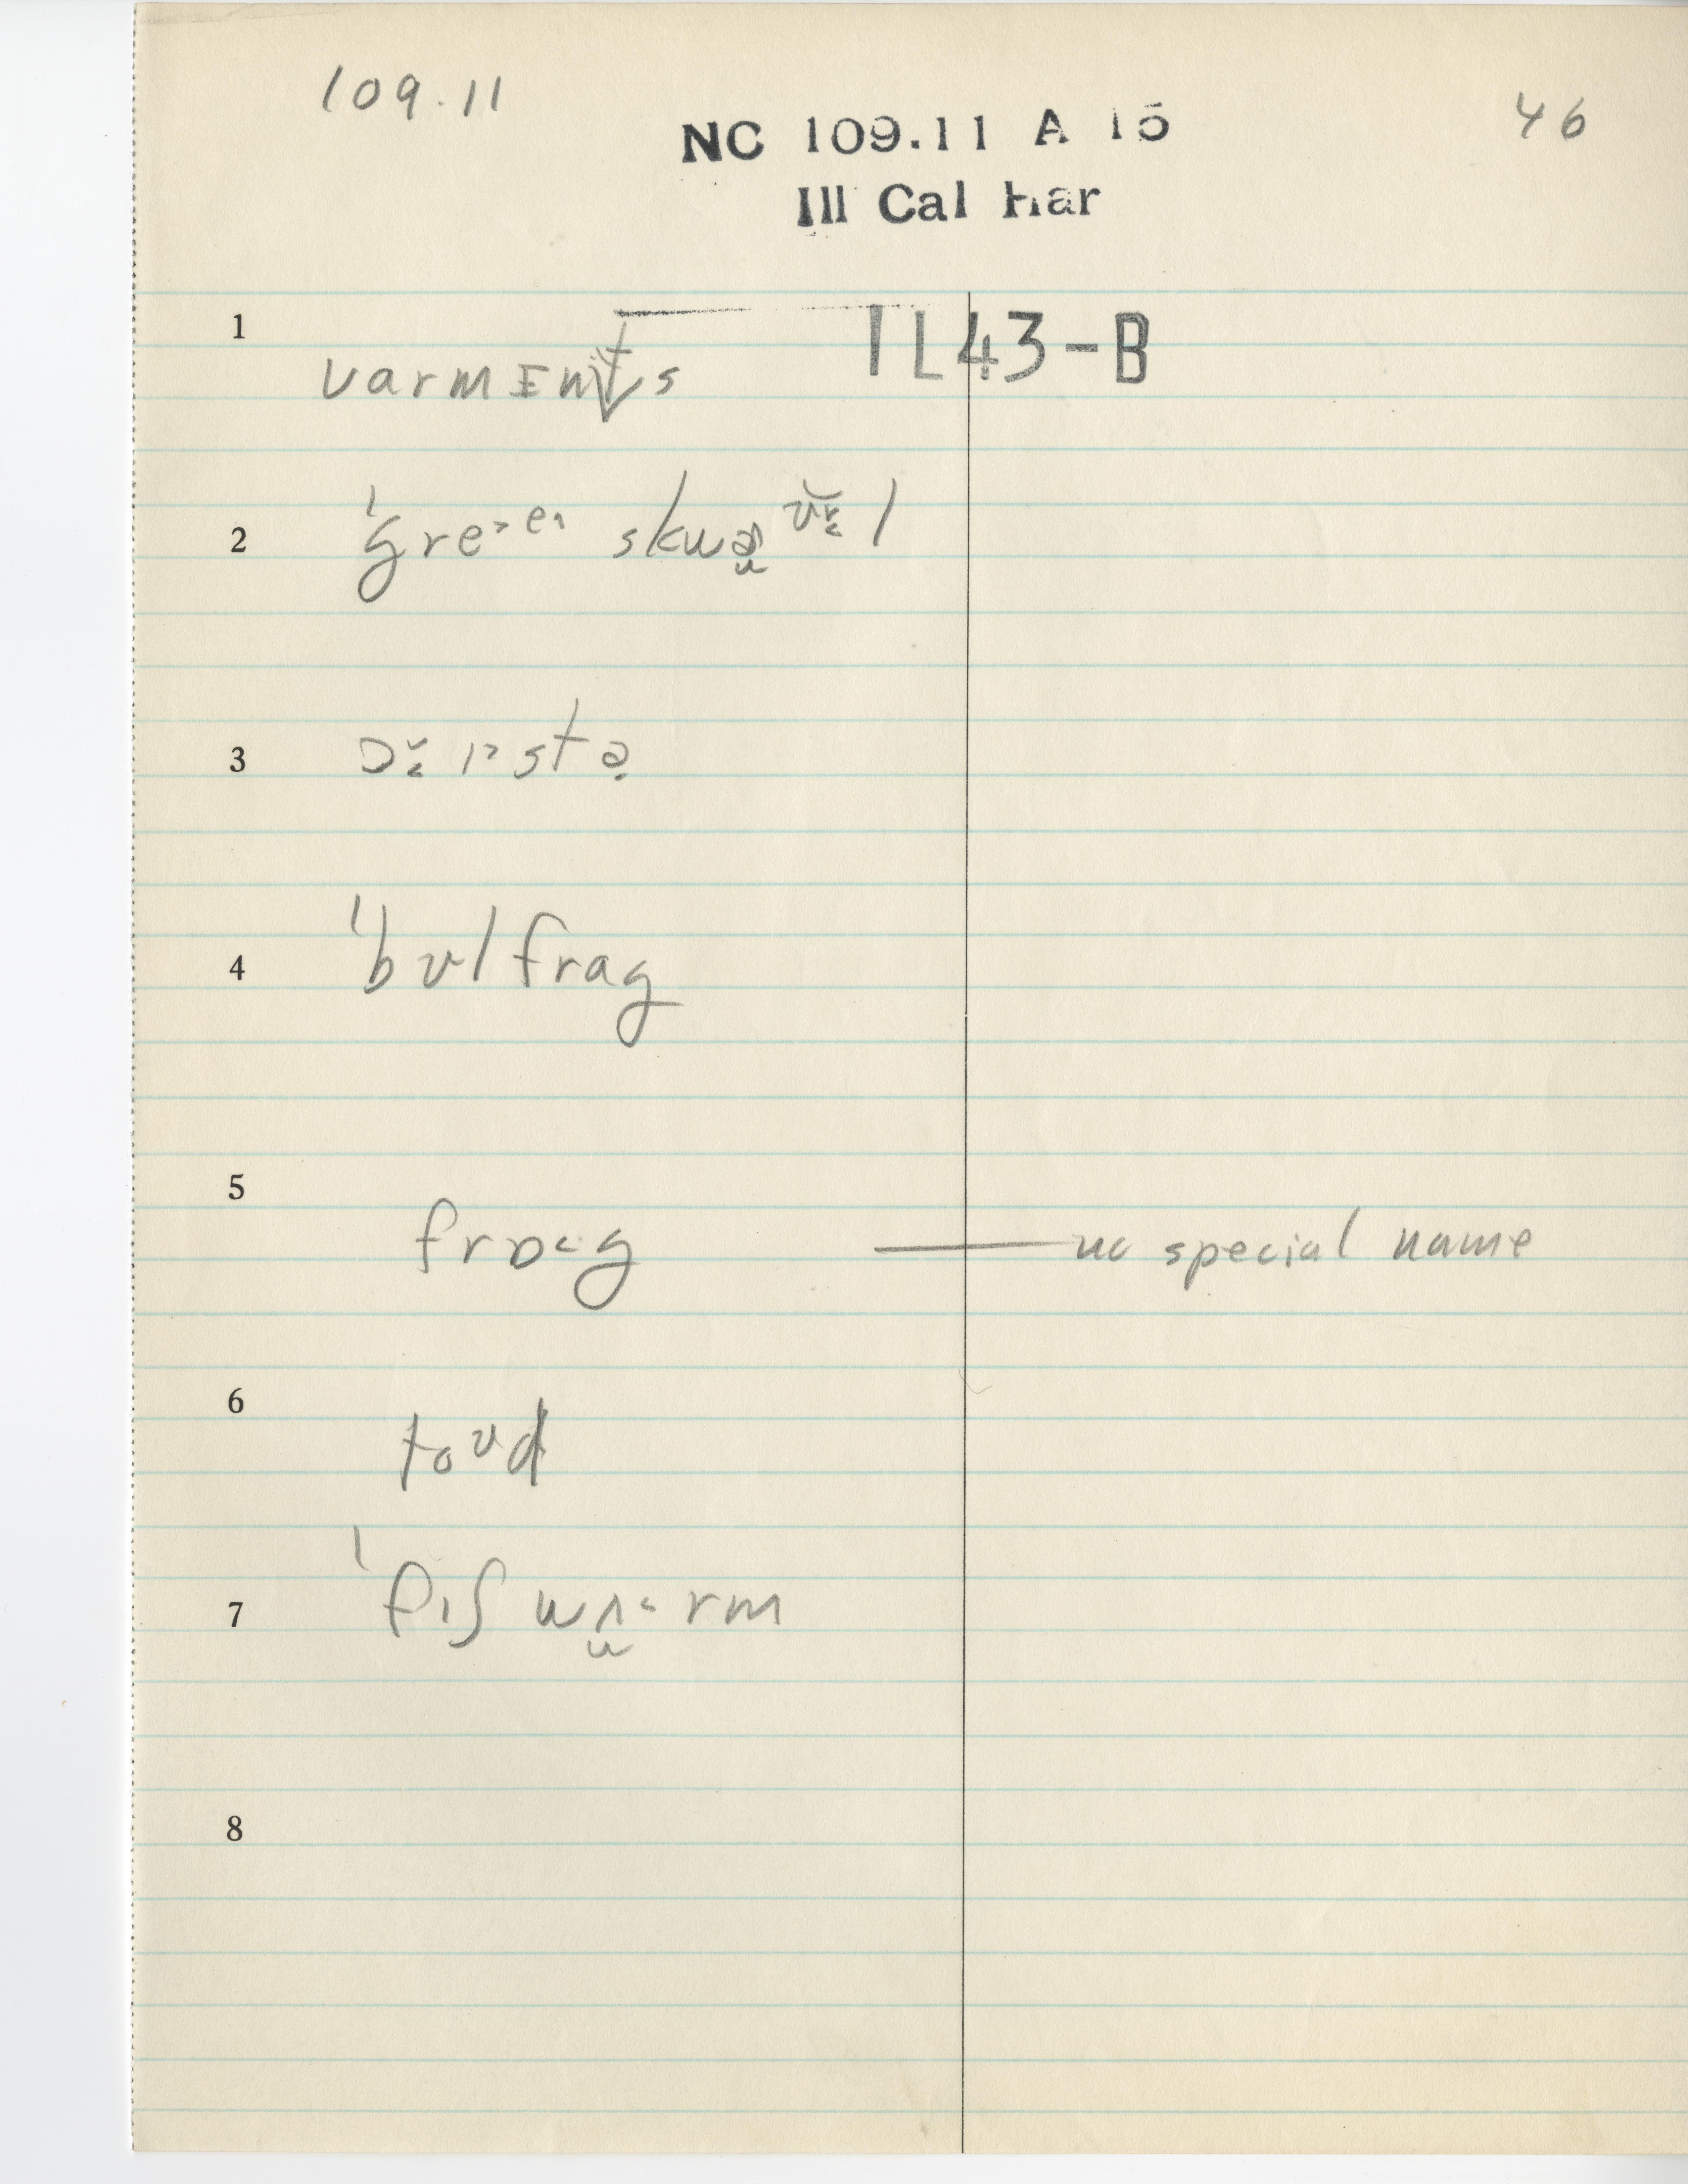 109.11
46
NC 109.11 A 15
Ill Cal Har
IL43-B
1 varmɪnts
2 ˈgre˃eˑ skwə
3
4 ˈbʊlfrag
5 frɒ˂g — no special name
6 toʊd
7 ˈfɪʃ wʌ˂rm
8